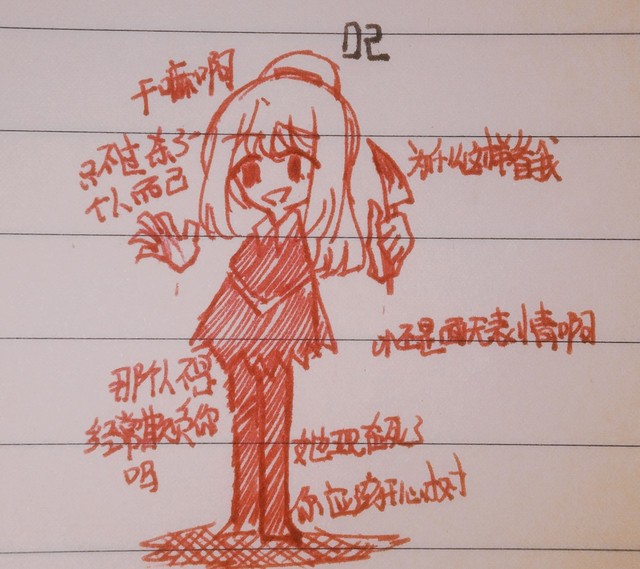 02
干嘛啊
只不过杀了
个人而已
为什么这样看我
还是面无表情啊
那个人不是
经常欺负你
吗
她现在死了
你应该开心才对